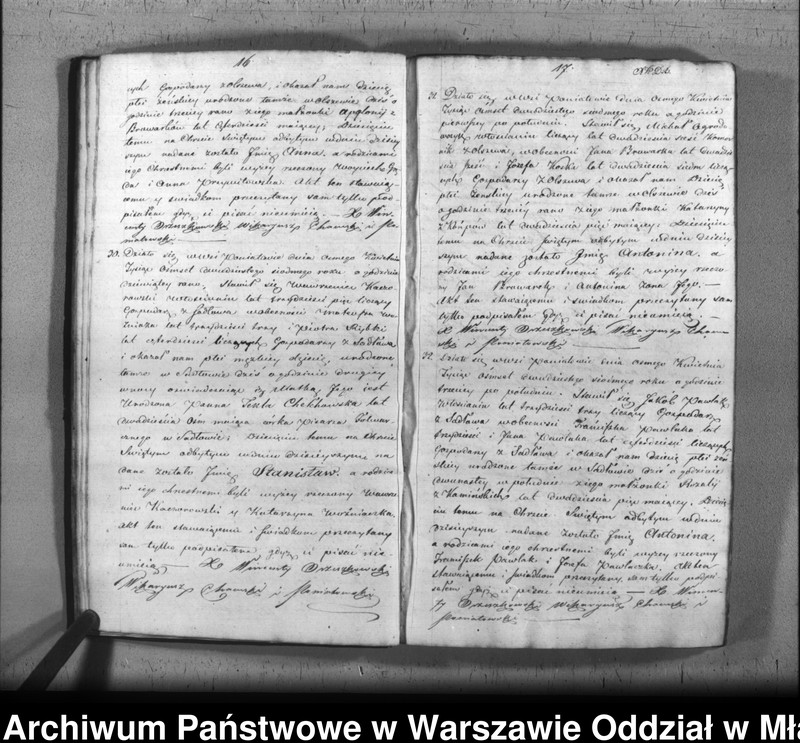 16
ych Gospodarzy z Olszewa, i okazał nam dziecię
płci żeńskiej urodzone tamże w Olszewie dziś o
godzinie trzeciey rano z iego małżonki Apolonij z
lat czterdzieści maiącey, Dziecięciu
temu na Chrzcie Świętym odbytym w dniu dzisiey
szym nadane zostało Imię Anna, a rodzicami
iego chrzestnemi byli wyżey rzeczony
i Anna Akt ten stawaią
cemu y świadkom przeczytany sam tylko pod
pisałem gdyż ci pisać nieumieią. X Win
centy Wikaryusz i
20. Działo się w wsi Poniatowie dnia ósmego Kwietnia
Tysiąc Ośmset dwudziestego siódmego roku o godzinie
dziewiątey rano, Stawił się Wawrzeniec Kaczo
rowski włościanin lat trzydzieści pięć liczący
Gospodarz z Sadłowa w obecności Mateusza Wo
źniaka lat trzydzieści trzy i Piotra
lat czterdzieści liczących Gospodarzy z Sadłowa
i okazał nam płci męzkiey dziecię, urodzone
tamże w Sadłowie dziś o godzinie drugiey
w nocy oświadczaiąc iż Matką Jego iest
Urodzona Panna Tekla Chełchowska lat
dwadzieścia ośm maiąca córka Pisarza
w Sadłowie; Dziecięciu temu na Chrzcie
Świętym odbytym w dniu dzisieyszym na
dane zostało Imię Stanisław, a rodzica
mi iego chrzestnemi byli wyżey rzeczony Wawrze
niec Kaczorowski y Katarzyna Woźniaczka.
Akt ten stawaiącemu i świadkom przeczytany
sam tylko podpisałem gdyż ci pisać nie
umieią — X Wincenty
Wikaryusz i
17.
21. Działo się w wsi Poniatowie dnia ósmego Kwietnia
Tysiąc Ośmset dwudziestego siódmego roku o godzinie
pierwszey po południu. Stawił się Michał Ogrodo
wczyk włościanin liczący lat dwadzieścia sześć
z Olszewa, w obecności Jana lat dwadzie
ścia pięć i Józefa lat dwadzieścia siedm licz
ących Gospodarzy z Olszewa i okazał nam Dziecię
płci żeńskiey urodzone tamże w Olszewie dziś
o godzinie trzeciey rano z iego małżonki Katarzyny
z lat dwadzieścia pięć maiącey; Dziecięciu
temu na Chrzcie Świętym odbytym w dniu dzisiey
szym nadane zostało Imię Antonina, a
rodzicami iego chrzestnemi byli wyżey rzeczo
ny Jan i Antonina żona Jego.
Akt ten stawaiącemu i świadkom przeczytany sam
tylko podpisałem gdyż ci pisać nieumieią.
X Wincenty Wikaryusz
i
22. Działo się w wsi Poniatowie dnia ósmego Kwietnia
Tysiąc Ośmset dwudziestego siódmego roku o godzinie
trzeciey po południu. Stawił się Jakób Pawlak,
włościanin lat trzydzieści trzy liczący Gospodarz
z Sadłowa w obecności Franciszka Pawlaka lat
trzydzieści i Jana Pawlaka lat czterdzieści liczących
Gospodarzy z Sadłowa i okazał nam dziecię płci żeń
skiey urodzone tamże w Sadłowie dziś o godzinie
dwunastey w południe z iego małżonki Rozalij
z Kamińskich lat dwadzieścia pięć maiącey. Dziecię
ciu temu na Chrzcie Świętym odbytym w dniu
dzisieyszym nadane zostało Imię Antonina,
a rodzicami iego chrzestnemi byli wyżey rzeczony
Franciszek Pawlak i Józefa Pawlaczka. Akt ten
stawaiącemu i świadkom przeczytany sam tylko podpi
sałem gdyż ci pisać nieumieią — X Wincen
ty Wikaryusz i
Archiwum Państwowe w Warszawie Oddział w Mła